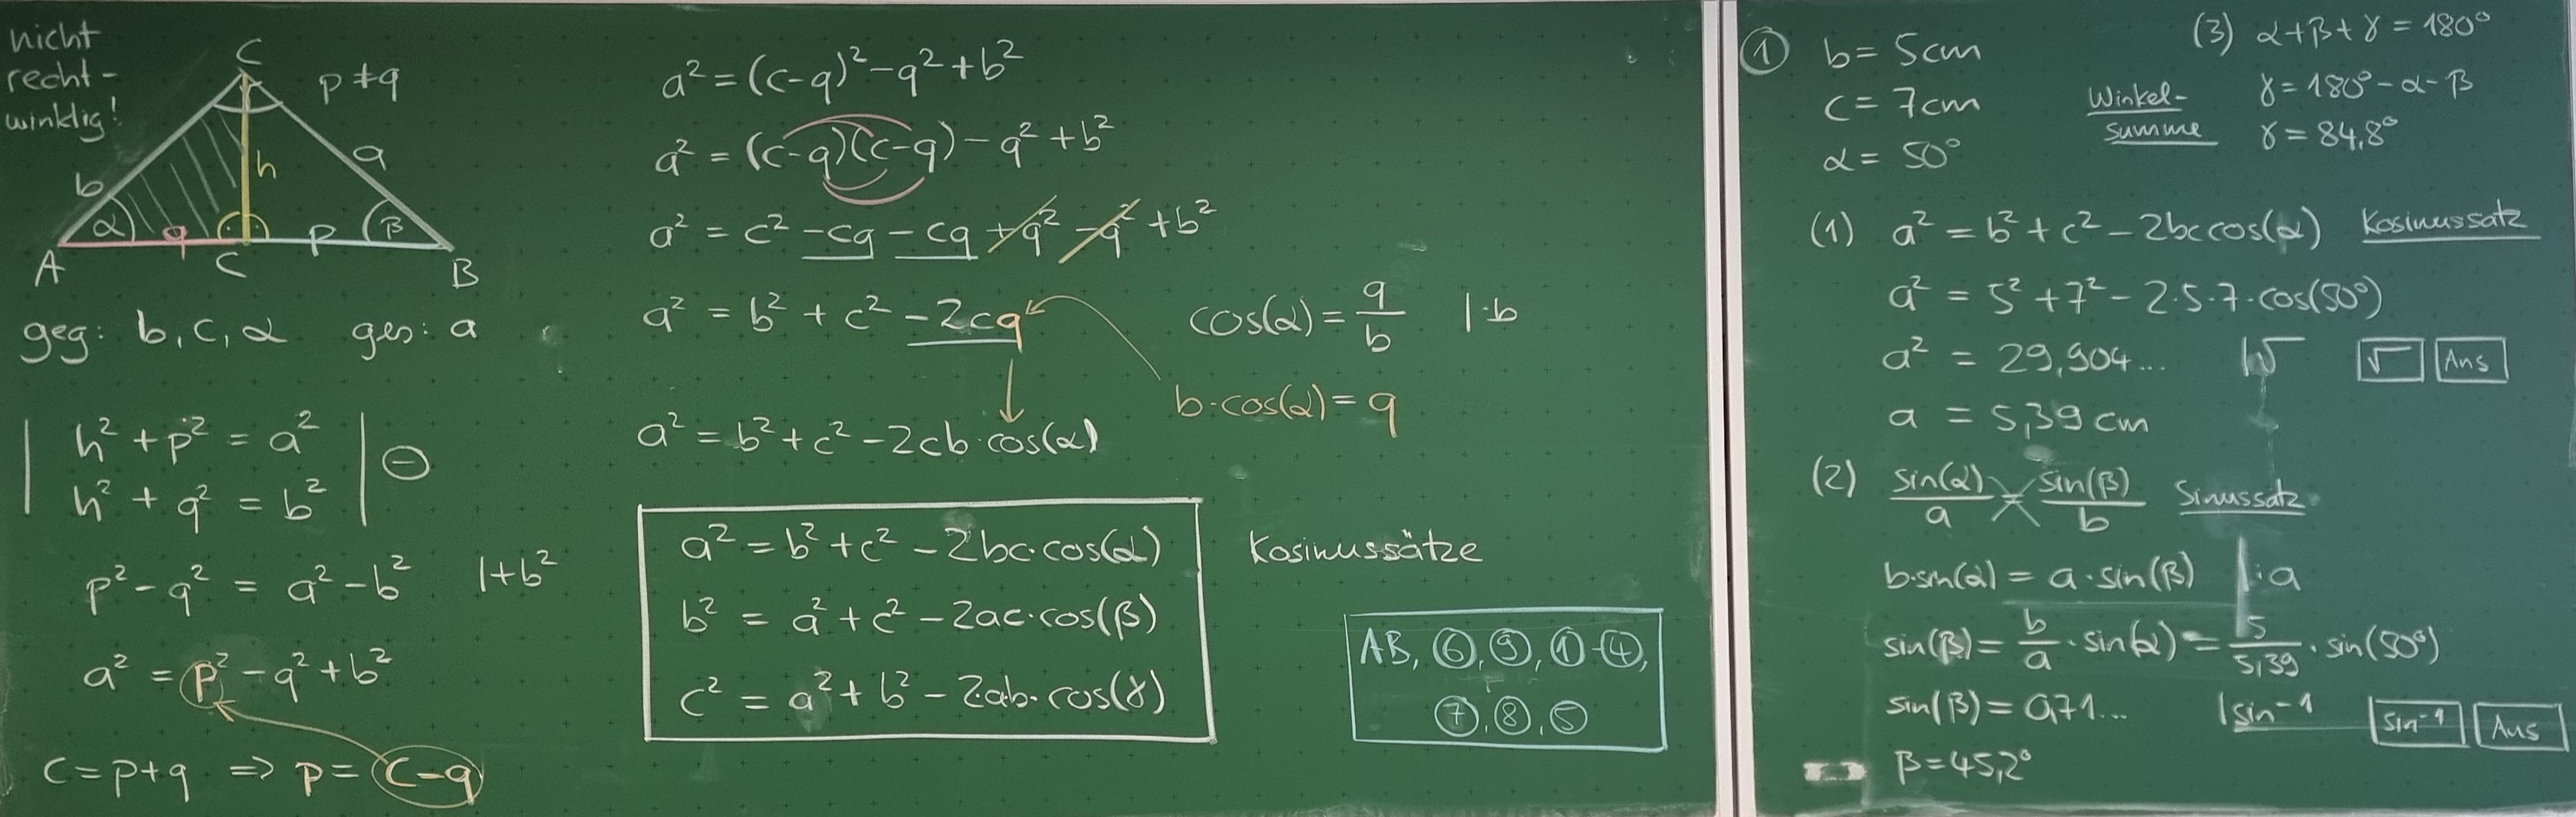 nicht
recht-
winklig!
C
p ≠ q
b
h
a
α
q
p
β
A
C
B
geg: b, c, α ges: a
h² + p² = a²
h² + q² = b²
⊖
p² - q² = a² - b² |+b²
a² = p² - q² + b²
c = p+q => p = c-q
a² = (c-q)² - q² + b²
a² = (c-q)(c-q) - q² + b²
a² = c² - cq - cq + q² - q² + b²
a² = b² + c² - 2cq
cos(α) = q/b |·b
b·cos(α) = q
a² = b² + c² - 2cb·cos(α)
a² = b² + c² - 2bc·cos(α)
b² = a² + c² - 2ac·cos(β)
c² = a² + b² - 2ab·cos(γ)
Kosinussätze
AB, ⑥, ⑨, ①-④,
⑦, ⑧, ⑤
① b = 5cm
c = 7cm
α = 50°
(3) α+β+γ = 180°
Winkel-
summe
γ = 180° - α - β
γ = 84,8°
(1) a² = b² + c² - 2bc cos(α) Kosinussatz
a² = 5² + 7² - 2·5·7·cos(50°)
a² = 29,904... |√ √ Ans
a = 5,39 cm
(2) sin(α)/a = sin(β)/b Sinussatz
b·sin(α) = a·sin(β) |:a
sin(β) = b/a · sin(α) = 5/5,39 · sin(50°)
sin(β) = 0,71... |sin⁻¹ sin⁻¹ Ans
β = 45,2°